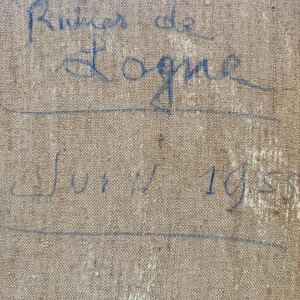 Ruines de
Logne
Juin 195